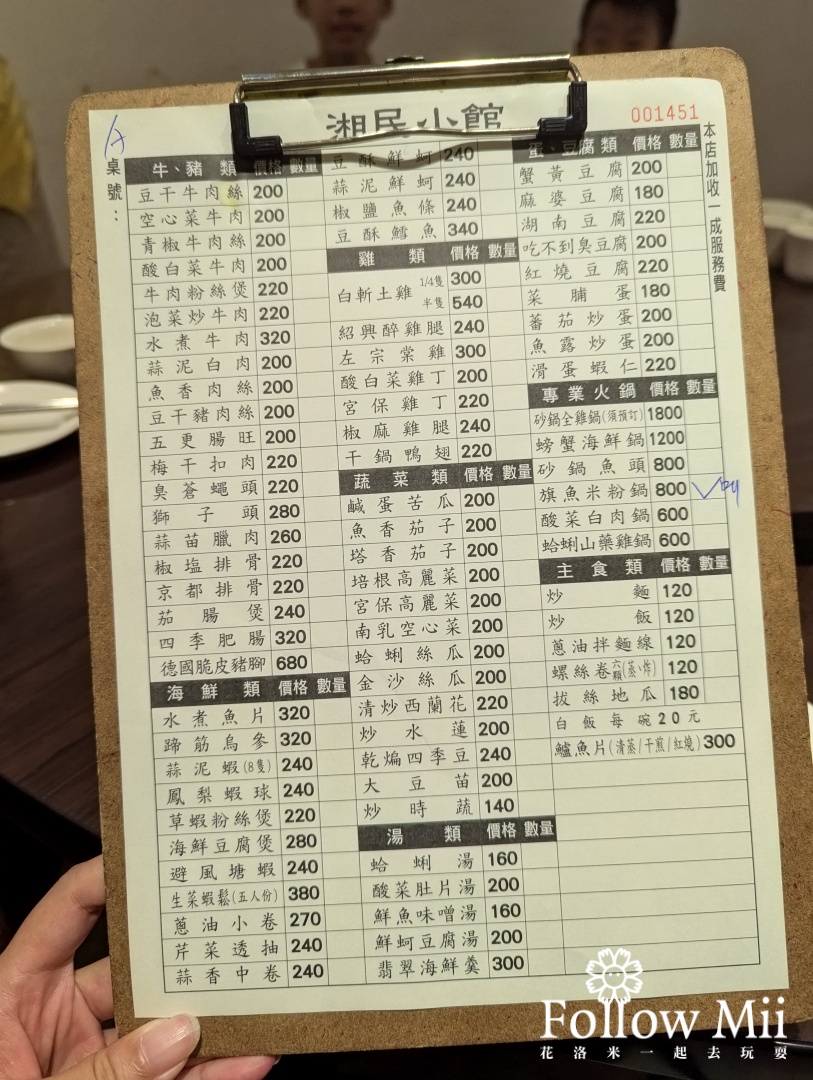 湘民小館
001451
本店加收一成服務費
A
桌號：
牛、豬類 價格 數量
豆干牛肉絲 200
空心菜牛肉 200
青椒牛肉絲 200
酸白菜牛肉 200
牛肉粉絲煲 220
泡菜炒牛肉 220
水煮牛肉 320
蒜泥白肉 200
魚香肉絲 200
豆干豬肉絲 200
五更腸旺 200
梅干扣肉 220
臭蒼蠅頭 220
獅子頭 280
蒜苗臘肉 260
椒塩排骨 220
京都排骨 220
茄腸煲 240
四季肥腸 320
德國脆皮豬腳 680
海鮮類 價格 數量
水煮魚片 320
蹄筋烏參 320
蒜泥蝦(8隻) 240
鳳梨蝦球 240
草蝦粉絲煲 220
海鮮豆腐煲 280
避風塘蝦 240
生菜蝦鬆(五人份) 380
蔥油小卷 270
芹菜透抽 240
蒜香中卷 240
豆酥鮮蚵 240
蒜泥鮮蚵 240
椒鹽魚條 240
豆酥鱈魚 340
雞類 價格 數量
白斬土雞 1/4隻 300
半隻 540
紹興醉雞腿 240
左宗棠雞 300
酸白菜雞丁 200
宮保雞丁 220
椒麻雞腿 240
干鍋鴨翅 220
蔬菜類 價格 數量
鹹蛋苦瓜 200
魚香茄子 200
塔香茄子 200
培根高麗菜 200
宮保高麗菜 200
南乳空心菜 200
蛤蜊絲瓜 200
金沙絲瓜 200
清炒西蘭花 220
炒水蓮 200
乾煸四季豆 240
大豆苗 200
炒時蔬 140
湯類 價格 數量
蛤蜊湯 160
酸菜肚片湯 200
鮮魚味噌湯 160
鮮蚵豆腐湯 200
翡翠海鮮羹 300
蛋、豆腐類 價格 數量
蟹黃豆腐 200
麻婆豆腐 180
湖南豆腐 220
吃不到臭豆腐 200
紅燒豆腐 220
菜脯蛋 180
蕃茄炒蛋 200
魚露炒蛋 200
滑蛋蝦仁 220
專業火鍋 價格 數量
砂鍋全雞鍋(須預訂) 1800
螃蟹海鮮鍋 1200
砂鍋魚頭 800
旗魚米粉鍋 800
酸菜白肉鍋 600
蛤蜊山藥雞鍋 600
主食類 價格 數量
炒麵 120
炒飯 120
蔥油拌麵線 120
螺絲卷六顆(蒸、炸) 120
拔絲地瓜 180
白飯每碗20元
鱸魚片(清蒸/干煎/紅燒) 300
Follow Mii
花洛米一起去玩耍